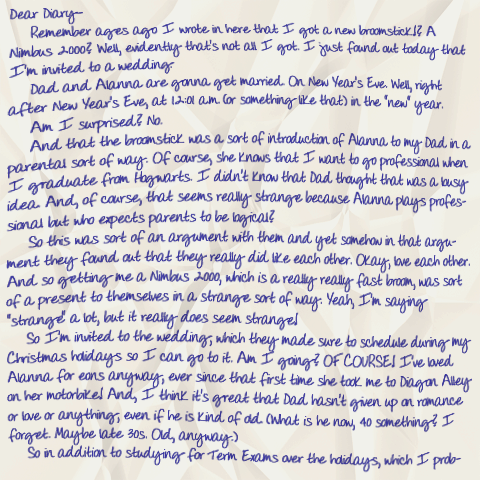 Dear Diary—
Remember ages ago I wrote in here that I got a new broomstick!? A
Nimbus 2000? Well, evidently that's not all I got. I just found out today that
I'm invited to a wedding.
Dad and Alanna are gonna get married. On New Year's Eve. Well, right
after New Year's Eve, at 12:01 a.m. (or something like that) in the "new" year.
Am I surprised? No.
And that the broomstick was a sort of introduction of Alanna to my Dad in a
parental sort of way. Of course, she knows that I want to go professional when
I graduate from Hogwarts. I didn't know that Dad thought that was a lousy
idea. And, of course, that seems really strange because Alanna plays profes-
sional but who expects parents to be logical?
So this was sort of an argument with them and yet somehow in that argu-
ment they found out that they really did like each other. Okay, love each other.
And so getting me a Nimbus 2000, which is a really really fast broom, was sort
of a present to themselves in a strange sort of way. Yeah, I'm saying
"strange" a lot, but it really does seem strange!
So I'm invited to the wedding; which they made sure to schedule during my
Christmas holidays so I can go to it. Am I going? OF COURSE! I've loved
Alanna for eons anyway; ever since that first time she took me to Diagon Alley
on her motorbike! And, I think it's great that Dad hasn't given up on romance
or love or anything; even if he is kind of old. (What is he now, 40 something? I
forget. Maybe late 30s. Old, anyway.)
So in addition to studying for Term Exams over the holidays, which I prob-